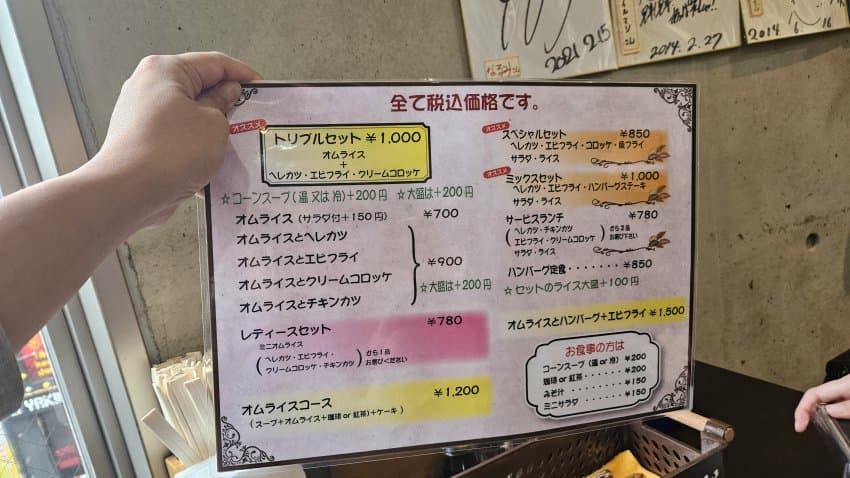 2021 2.15
なるみん
2014.2.27
2014 6.16
全て税込価格です。
オススメ
トリプルセット ¥1,000
オムライス
+
ヘレカツ・エビフライ・クリームコロッケ
☆コーンスープ(温 又は 冷)+200円 ☆大盛は+200円
オムライス (サラダ付+150円) ¥700
オムライスとヘレカツ
オムライスとエビフライ
オムライスとクリームコロッケ
オムライスとチキンカツ
¥900
☆大盛は+200円
レディースセット ¥780
ミニオムライス
(ヘレカツ・エビフライ・
クリームコロッケ・チキンカツ)
から1品
お選びください
オムライスコース ¥1,200
(スープ+オムライス+珈琲or紅茶)+ケーキ)
オススメ
スペシャルセット ¥850
ヘレカツ・エビフライ・コロッケ・魚フライ
サラダ・ライス
オススメ
ミックスセット ¥1,000
ヘレカツ・エビフライ・ハンバーグステーキ
サラダ・ライス
サービスランチ ¥780
(ヘレカツ・チキンカツ
エビフライ・クリームコロッケ
サラダ・ライス)
から2品
お選び下さい
ハンバーグ定食・・・・・・¥850
☆ セットのライス大盛+100円
オムライスとハンバーグ+エビフライ ¥1,500
お食事の方は
コーンスープ(温 or 冷) ¥200
珈琲 or 紅茶・・・・・・¥200
みそ汁・・・・・・・・¥150
ミニサラダ・・・・・・¥150